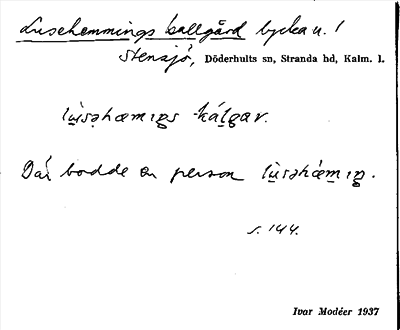 Lusehemmings kallgård lycka u. /
Stensjö, Döderhults sn, Stranda hd, Kalm. l.
lu̇sǝhæmıŋs kálgar.
Där bodde en person lu̇sǝhǽmıŋ.
s. 144.
Ivar Modéer 1937